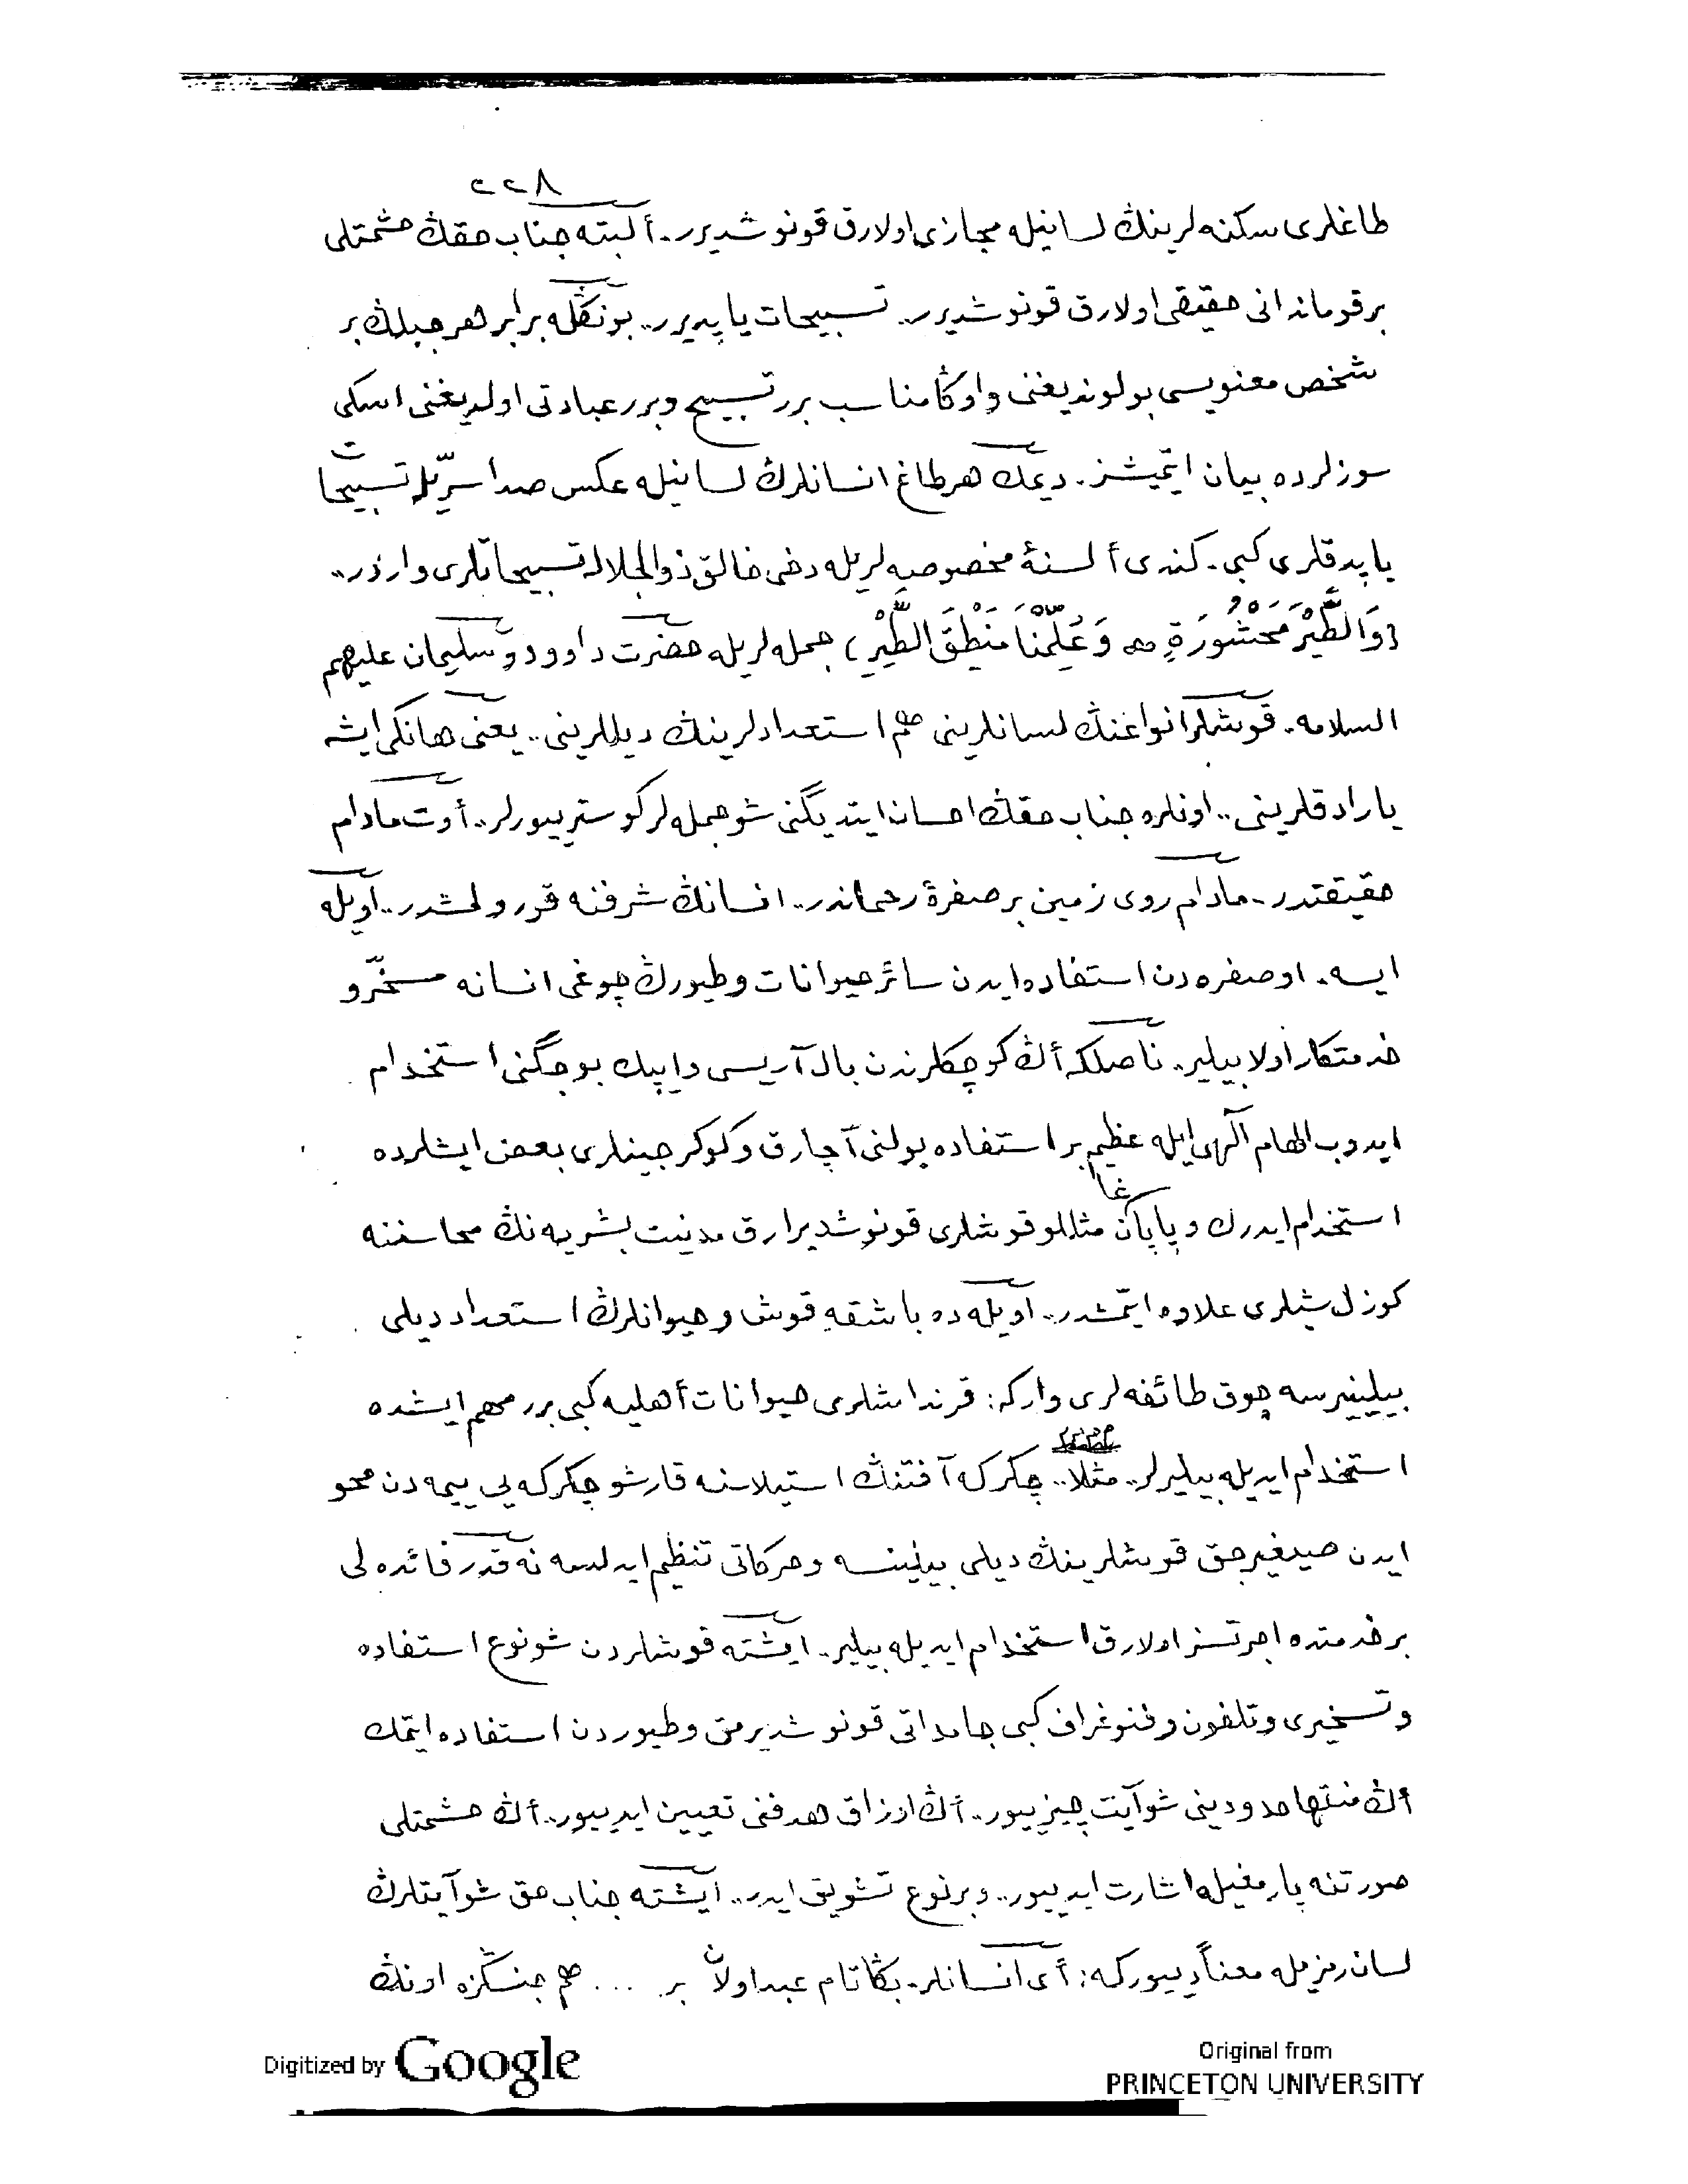 ٢٢٨
طاغلری سكنه لرينڭ لسانيله مجازی اولارق قونوشديرر.. ألبته جناب حقڭ حشمتلی
بر قوماندانی حقيقی اولارق قونوشديرر.. تسبيحات ياپديرر.. بونڭله برابر هر جبلڭ بر
شخص معنويسی بولونديغنی و اوڭا مناسب برر تسبيح و برر عبادتی اولديغنی اسكی
سوزلرده بيان ايتمشز. ديمك هر طاغ انسانلرڭ لسانيله عكس صدا سرّيله تسبيحات
ياپدقلری كبی. كندی ألسنۀ مخصوصه لريله دخی خالق ذوالجلاله تسبيحاتلری واردر..
(وَالطَّيْرَ مَحْشُورَةً ﴿﴾ وَعُلِّمْنَا مَنْطِقَ الطَّيْرِ) جمله لريله حضرت داوود و سليمان عليهم
السلامه. قوشلر انواعنڭ لسانلرينی هم استعدادلرينڭ ديللرينی.. يعنی هانكی ايشه
يارادقلرينی.. اونلره جناب حقڭ احسان ايتديگنی شو جمله لر كوستريیورلر.. أوت مادام
حقيقتدر.. مادام روی زمين بر صفرۀ رحماندر.. انسانڭ شرفنه قورولمشدر.. اويله
ايسه. او صفره دن استفاده ايدن سائر حيوانات و طيورڭ چوغی انسانه مسخّر و
خدمتكار اولابيلير. ناصلكه أڭ كوچكلرندن بال آريسی و ايپك بوجگنی استخدام
ايدوب الهام آلهی ايله عظيم بر استفاده يولنی آچارق و كوكرجينلری بعض ايشلرده
استخدام ايدرك و پاپاغان مثللو قوشلری قونوشديرارق مدنيت بشريه نڭ محاسننه
كوزل شيلری علاوه ايتمشدر.. اويله ده باشقه قوش و حيوانلرڭ استعداد ديلی
بيلينيرسه چوق طائفه لری واركه: قرنداشلری حيوانات أهليه كبی برر مهم ايشده
استخدام ايديله بيليرلر.. مثلا.. چكركه آفتنڭ استيلاسنه قارشو چكركه يی ييمه دن محو
ايدن صيغيرجق قوشلرينڭ ديلی بيلينسه و حركاتی تنظيم ايدلسه نه قدر فائده لی
بر خدمتده اجرتسز اولارق استخدام ايديله بيلير. ايشته قوشلردن شو نوع استفاده
و تسخيری و تلفون و فنوغراف كبی جامداتی قونوشديرمق و طيوردن استفاده ايتمك
أڭ منتها حدودينی شو آيت چيزيیور.. أڭ اوزاق هدفنی تعيين ايديیور.. أڭ حشمتلی
صورتنه پارمغيله اشارت ايديیور.. و بر نوع تشويق ايدر.. ايشته جناب حق شو آيتلرڭ
لسان رمزيله معناً ديیوركه: أی انسانلر. بڭا تام عبد اولان بر ... هم جنسڭزه اونڭ
Digitized by Google
Original from
PRINCETON UNIVERSITY